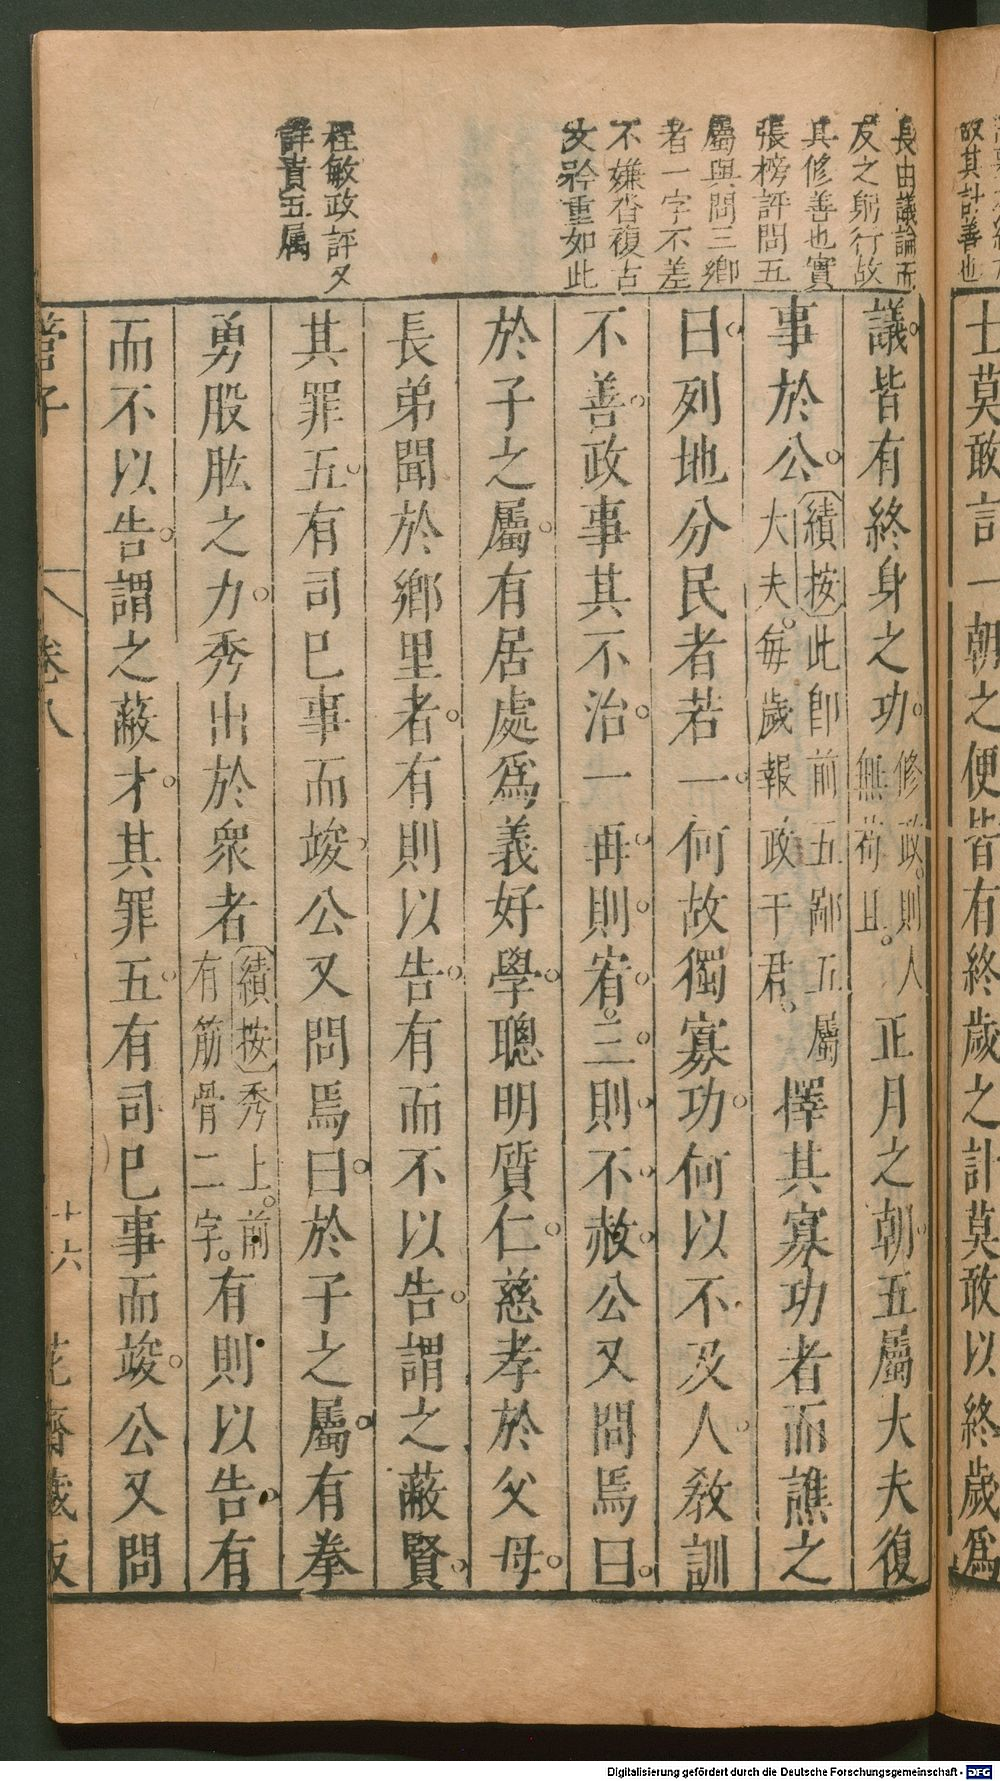 故其計善也
士莫敢言一朝之便皆有終歲之計莫敢以終歲爲
長由議論而
反之躬行故
其修善也實
張榜評問五
屬與問三鄉
者一字不差
不嫌沓複古
文矜重如此
程敏政評又
詳責五属
議皆有終身之功修政則人無苟且正月之朝五屬大夫復
事於公績按此卽前五鄙五屬大夫每歲報政于君擇其寡功者而譙之
曰列地分民者若一何故獨寡功何以不及人教訓
不善政事其不治一再則宥三則不赦公又問焉曰
於子之屬有居處爲義好學聰明質仁慈孝於父母
長弟聞於鄉里者有則以告有而不以告謂之蔽賢
其罪五有司巳事而竣公又問焉曰於子之屬有拳
勇股肱之力秀出於衆者績按秀上前有筋骨二字有則以告有
而不以告謂之蔽才其罪五有司巳事而竣公又問
管子
卷八
十六
花齋藏版
Digitalisierung gefördert durch die Deutsche Forschungsgemeinschaft - DFG